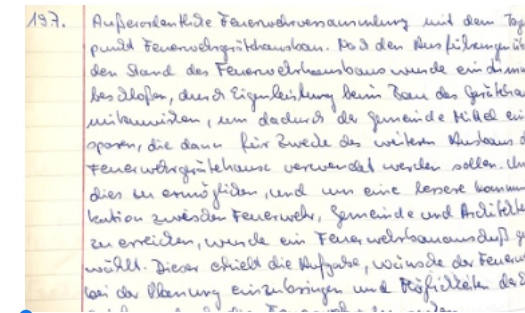 197. Außerordentliche Feuerwehrversammlung mit dem Tag
punkt Feuerwehrgerätehausbau. Nach den Ausführungen üb
den Stand des Feuerwehrhausbaus wurde einstimm
beschloßen, durch Eigenleistung beim Bau des Geräteha
mitzuwirken, um dadurch der Gemeinde Mittel ein
sparen, die dann für Zwecke des weiteren Ausbaus d
Feuerwehrgerätehause verwendet werden sollen. Um
dies zu ermöglichen, und um eine bessere Kommun
kation zwischen Feuerwehr, Gemeinde und Architekte
zu erreichen, wurde ein Feuerwehrbauausschuß ge
wählt. Dieser erhielt die Aufgabe, Wünsche der Feuerw
bei der Planung einzubringen und Möglichkeiten der E